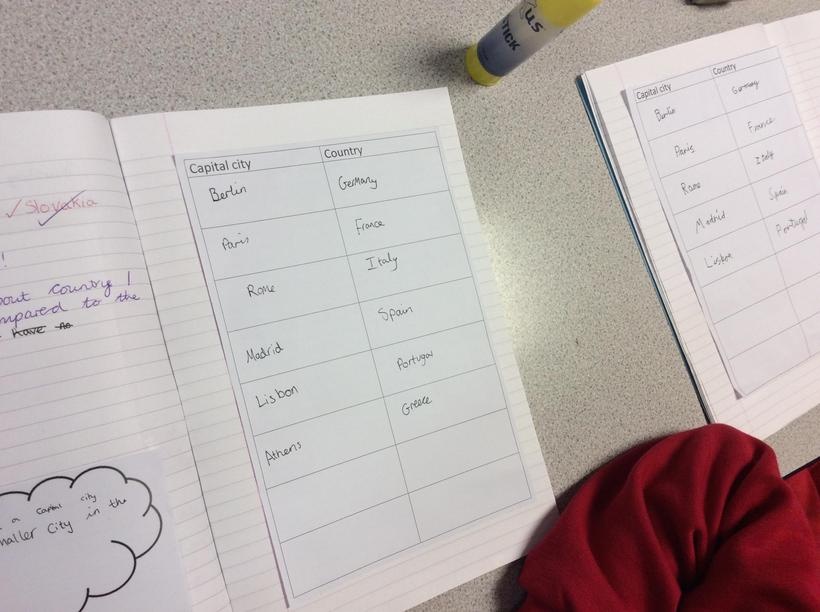 Slovakia
!
out country /
mpared to the
have
a capital city
maller city in the
Capital city Country
Berlin Germany
Paris France
Rome Italy
Madrid Spain
Lisbon Portugal
Athens Greece
us
TICK
Capital city Country
Berlin Germany
Paris France
Rome Italy
Madrid Spain
Lisbon Portugal